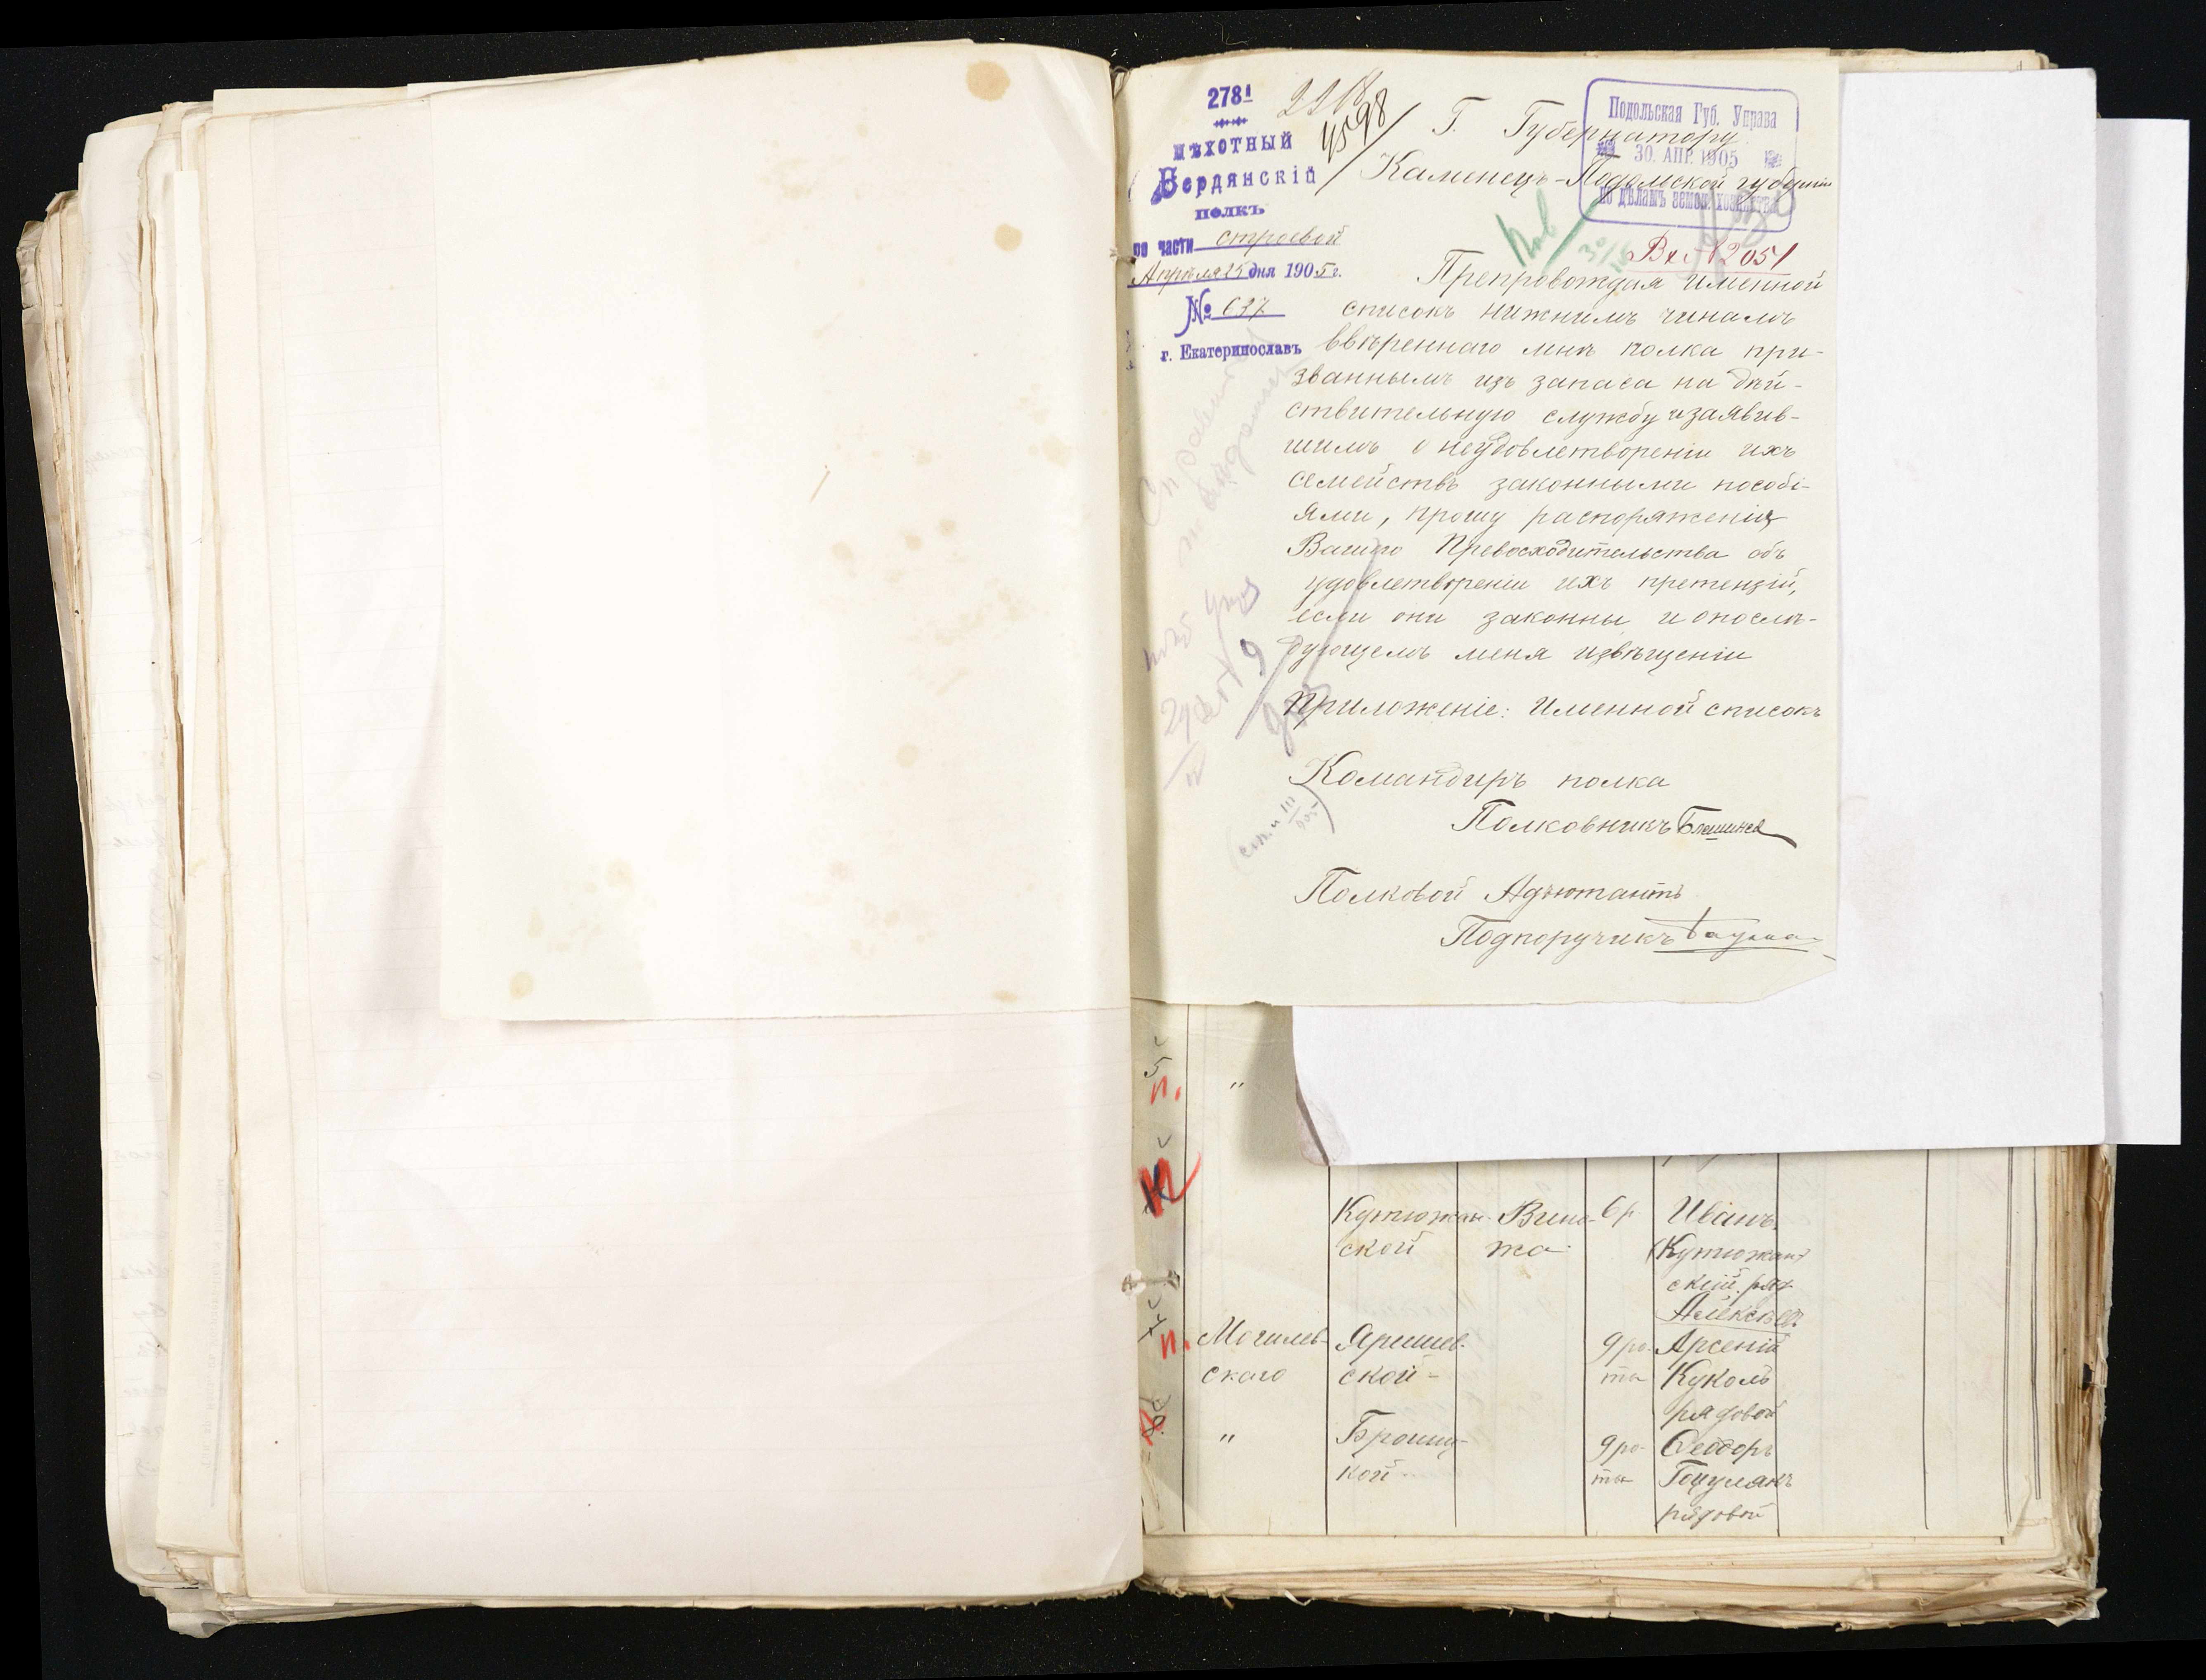 278й
пѣхотный
Бердянскій
полкъ
по части строевой
Апрѣля 25 дня 1905 г.
№ 637
г. Екатеринославъ
2218
4598
Г. Губернатору
Каменецъ-Подольской губерніи
Подольская Губ. Управа
30. АПР. 1905
по дѣламъ земск. хозяйства
Вх. № 12051
Препровождая именной
списокъ нижнимъ чинамъ
ввѣреннаго мнѣ полка при-
званнымъ изъ запаса на дѣй-
ствительную службу и заявив-
шимъ о неудовлетвореніи ихъ
семействъ законными пособі-
ями, прошу распоряженія
Вашего Превосходительства объ
удовлетвореніи ихъ претензій,
если они законны и о послѣ-
дующемъ меня извѣщеніи
Приложеніе: Именной списокъ
Командиръ полка
Полковникъ
Полковой Адъютантъ
Подпоручикъ
5
п.
"
Кутюжан- Вино- 6 р. Иванъ
ской жа (Кутюжан)
скій. ряд.
Алексѣевъ
7
п. Могилев- Яришев- 9 ро- Арсеній
скаго ской - ты Куколь
рядовой
8
" Бронниц- 9 ро- Ѳеодоръ
кой - ты Гоцулякъ
рядовой